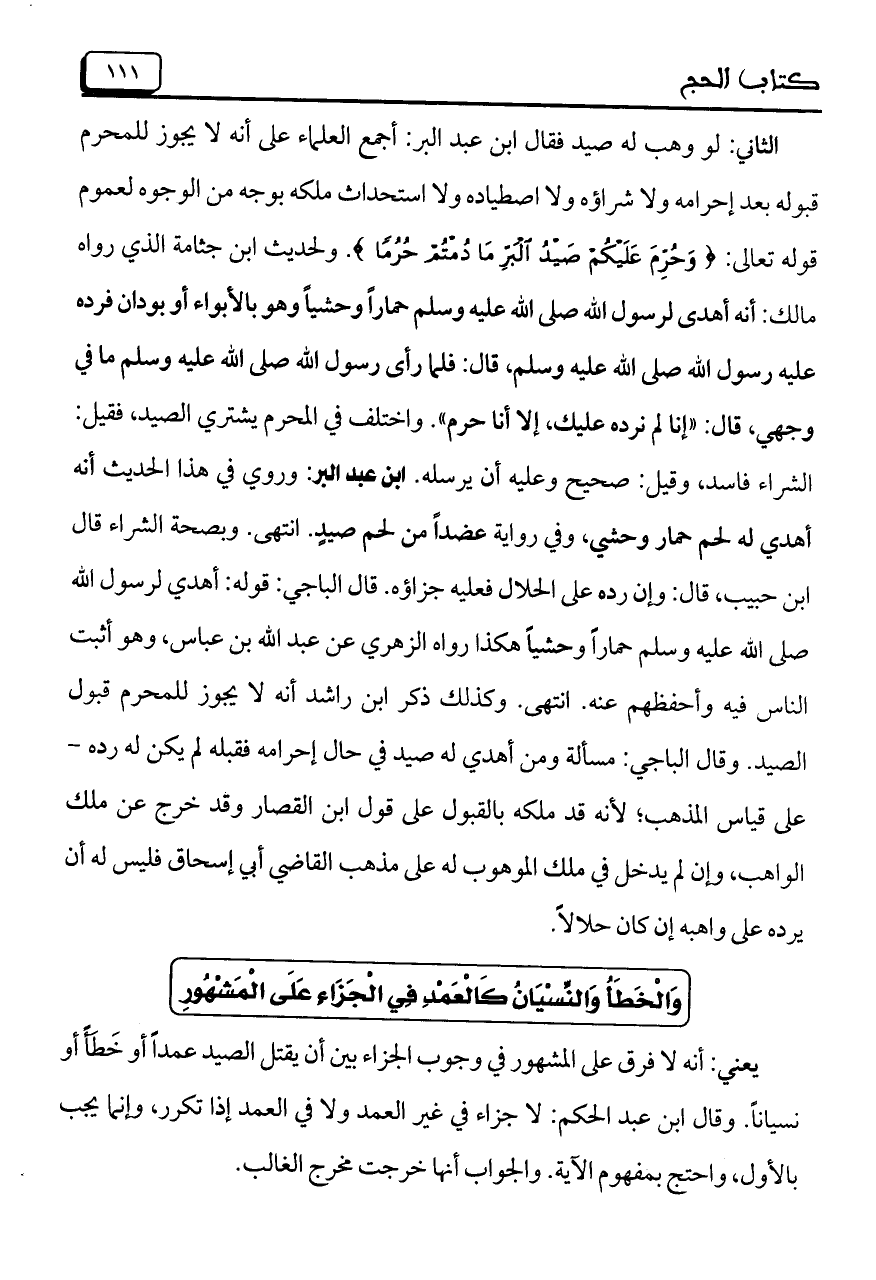 كتاب الحج
١١١
الثاني: لو وهب له صيد فقال ابن عبد البر: أجمع العلماء على أنه لا يجوز للمحرم
قبوله بعد إحرامه ولا شراؤه ولا اصطياده ولا استحداث ملكه بوجه من الوجوه لعموم
قوله تعالى: ﴿ وَحُرِّمَ عَلَيْكُمْ صَيْدُ ٱلْبَرِّ مَا دُمْتُمْ حُرُمًا ﴾. ولحديث ابن جثامة الذي رواه
مالك: أنه أهدى لرسول الله صلى الله عليه وسلم حماراً وحشياً وهو بالأبواء أو بودان فرده
عليه رسول الله صلى الله عليه وسلم، قال: فلما رأى رسول الله صلى الله عليه وسلم ما في
وجهي، قال: «إنا لم نرده عليك، إلا أنا حرم». واختلف في المحرم يشتري الصيد، فقيل:
الشراء فاسد، وقيل: صحيح وعليه أن يرسله. ابن عبد البر: وروي في هذا الحديث أنه
أهدي له لحم حمار وحشي، وفي رواية عضداً من لحم صيدٍ. انتهى. وبصحة الشراء قال
ابن حبيب، قال: وإن رده على الحلال فعليه جزاؤه. قال الباجي: قوله: أهدي لرسول الله
صلى الله عليه وسلم حماراً وحشياً هكذا رواه الزهري عن عبد الله بن عباس، وهو أثبت
الناس فيه وأحفظهم عنه. انتهى. وكذلك ذكر ابن راشد أنه لا يجوز للمحرم قبول
الصيد. وقال الباجي: مسألة ومن أهدي له صيد في حال إحرامه فقبله لم يكن له رده –
على قياس المذهب؛ لأنه قد ملكه بالقبول على قول ابن القصار وقد خرج عن ملك
الواهب، وإن لم يدخل في ملك الموهوب له على مذهب القاضي أبي إسحاق فليس له أن
يرده على واهبه إن كان حلالاً.
وَالْخَطَأُ وَالنِّسْيَانُ كَالْعَمْدِ فِي الْجَزَاءِ عَلَى الْمَشْهُورِ
يعني: أنه لا فرق على المشهور في وجوب الجزاء بين أن يقتل الصيد عمداً أو خَطَأً أو
نسياناً. وقال ابن عبد الحكم: لا جزاء في غير العمد ولا في العمد إذا تكرر، وإنما يجب
بالأول، واحتج بمفهوم الآية. والجواب أنها خرجت مخرج الغالب.